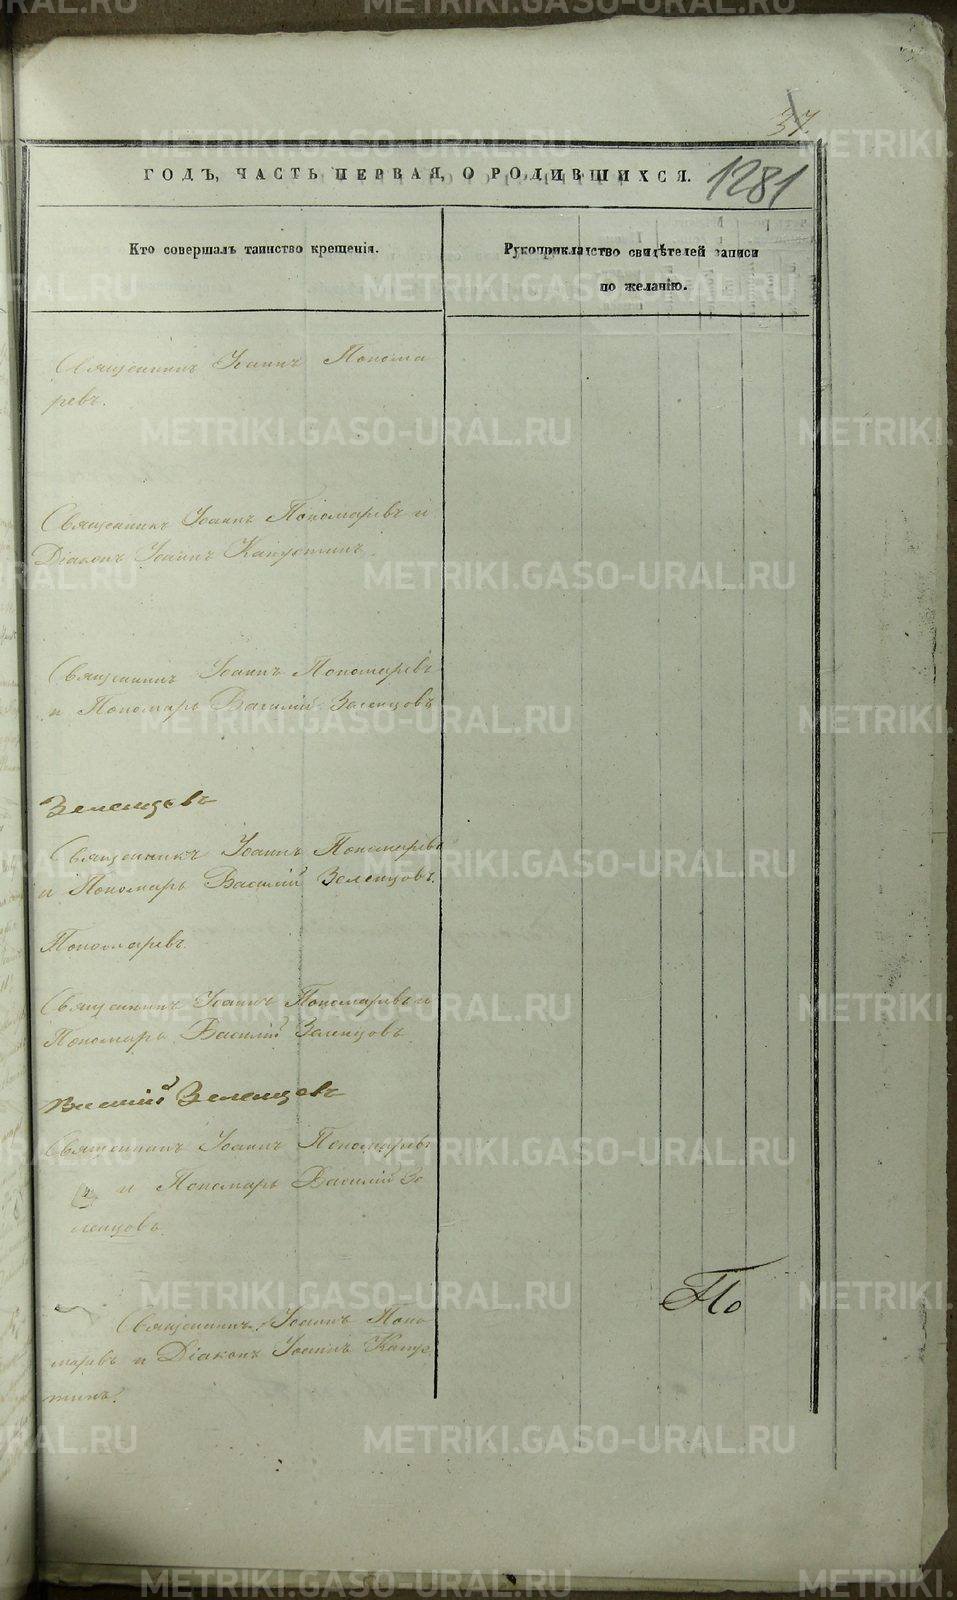 37.
ГОДЪ, ЧАСТЬ ПЕРВАЯ, О РОДИВШИХСЯ.
1281
Кто совершалъ таинство крещенія.
Рукоприкладство свидѣтелей записи
по желанію.
Священникъ Іоаннъ Понома
ревъ.
Священникъ Іоаннъ Пономаревъ и
Діаконъ Іоаннъ Капустинъ.
Священникъ Іоаннъ Пономаревъ
и Пономарь Василій Зеленцовъ
Зеленцовъ
Священникъ Іоаннъ Пономаревъ
и Пономарь Василій Зеленцовъ.
Пономаревъ.
Священникъ Іоаннъ Пономаревъ и
Пономарь Василій Зеленцовъ.
Василій Зеленцовъ
Священникъ Іоаннъ Пономаревъ
и Пономарь Василій Зе
ленцовъ.
По
Священникъ Іоаннъ Поно
маревъ и Діаконъ Іоаннъ Капус
тинъ.
METRIKI.GASO-URAL.RU